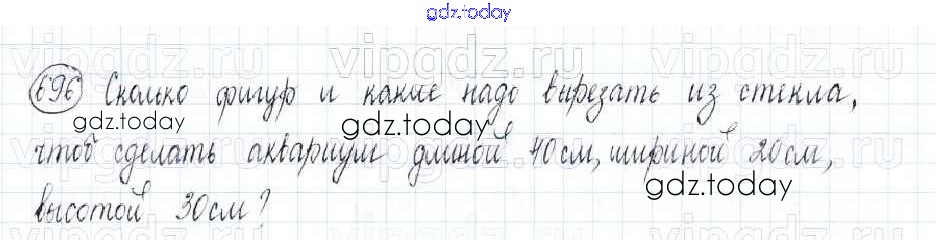 gdz.today
vipgdz.ru vipgdz.ru vipgdz.ru
696 Сколько фигур и какие надо вырезать из стекла,
gdz.today
чтоб сделать аквариум длиной 40см, шириной 20см,
gdz.today
высотой 30см?